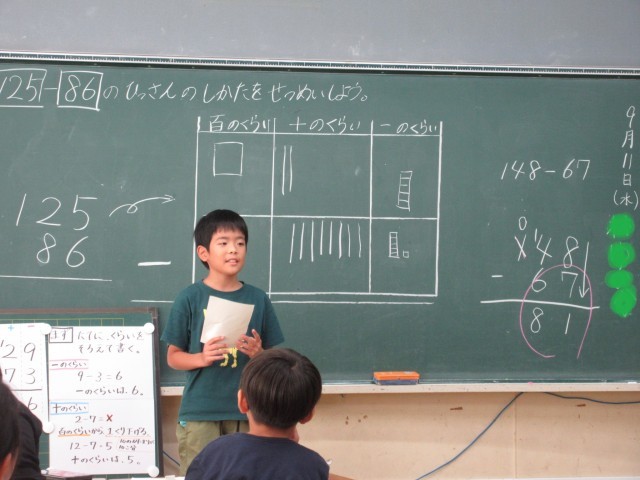 125-86のひっさんのしかたをせつめいしよう。
百のくらい 十のくらい 一のくらい
125
86
148-67
0
148
- 67
81
9月11日(水)
29
73
6
まず たてに、くらいを
そろえて書く。
一のくらい
9-3=6
一のくらいは、6。
十のくらい
2-7=×
百のくらいから1くり下げる。
12-7=5
十のくらいは、5。